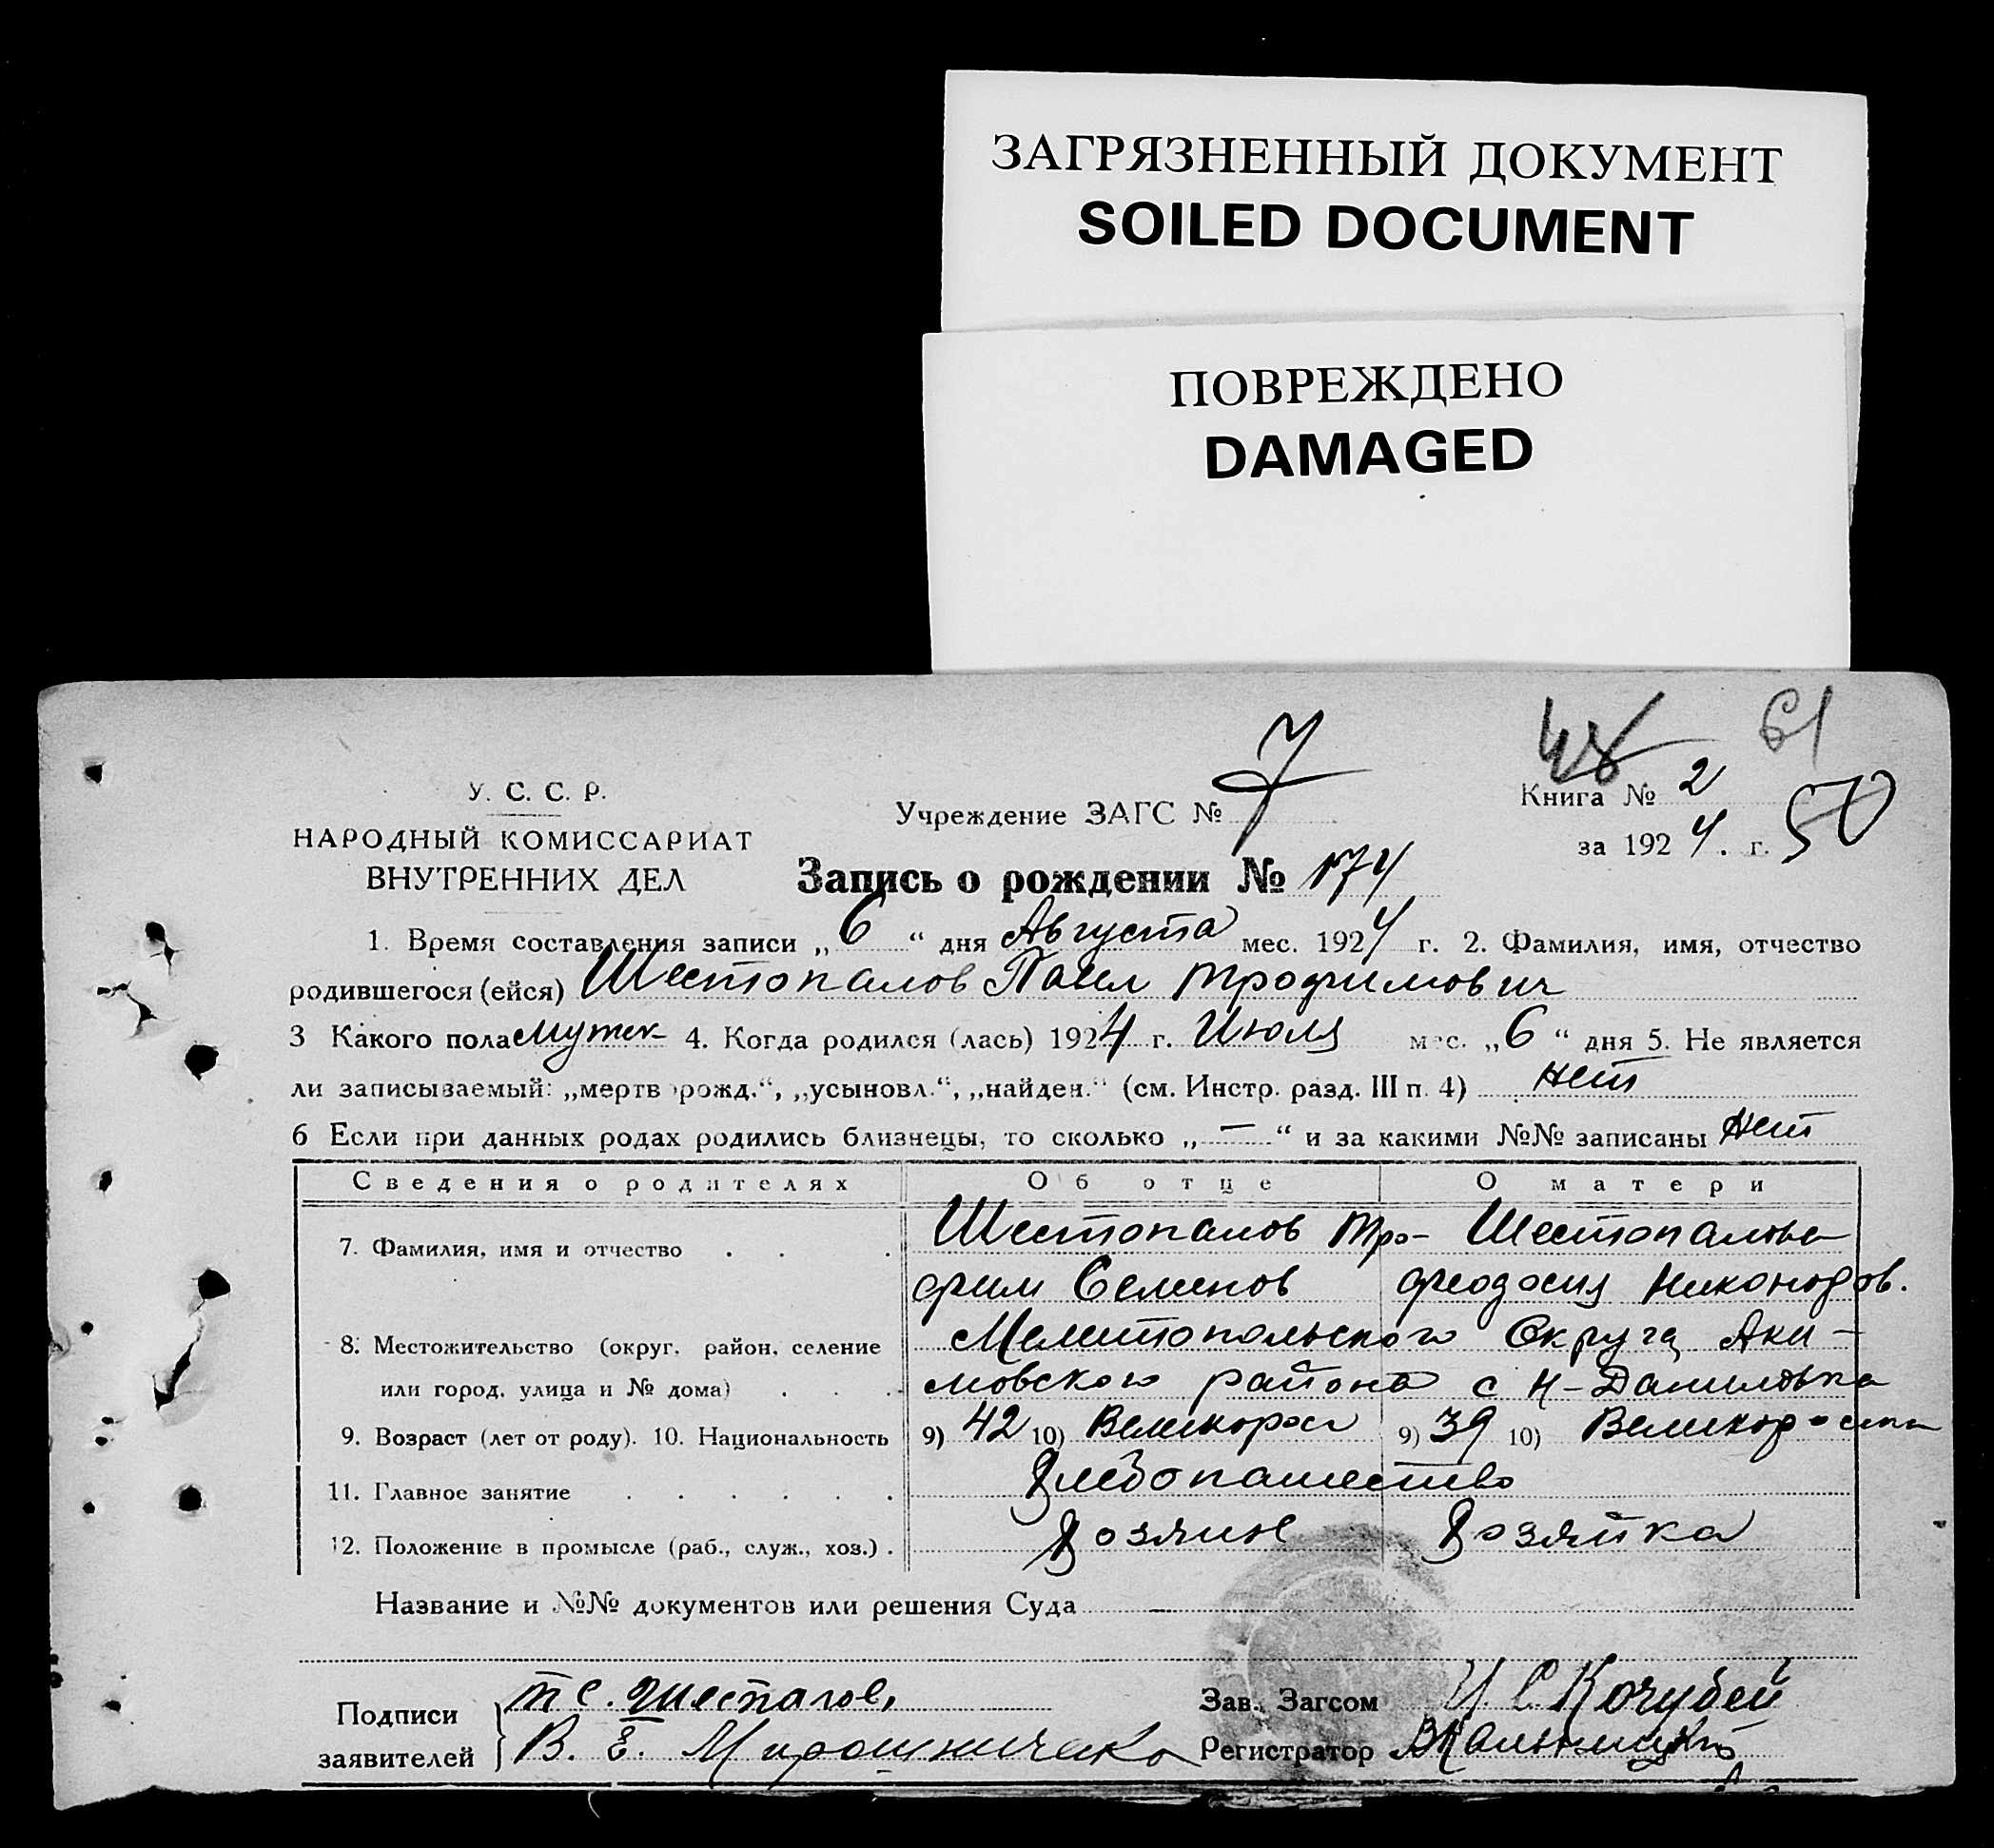 ЗАГРЯЗНЕННЫЙ ДОКУМЕНТ
SOILED DOCUMENT
ПОВРЕЖДЕНО
DAMAGED
61
У. С. С. Р.
НАРОДНЫЙ КОМИССАРИАТ
ВНУТРЕННИХ ДЕЛ
Учреждение ЗАГС № 7
Книга № 2
за 1924. г. 50
Запись о рождении № 174
1. Время составления записи „6“ дня Августа мес. 1924 г. 2. Фамилия, имя, отчество
родившегося (ейся) Шестопалов Павел Трофимович
3 Какого пола мужск 4. Когда родился (лась) 1924 г. Июля мес. „6“ дня 5. Не является
ли записываемый: „мертворожд.“, „усыновл.“, „найден.“ (см. Инстр. разд. III п. 4) нет
6 Если при данных родах родились близнецы, то сколько „—“ и за какими №№ записаны нет
Сведения о родителях Об отце О матери
7. Фамилия, имя и отчество Шестопалов Тро- Шестопалова
фим Семенов феодосия Никоноров.
8. Местожительство (округ, район, селение Мелитопольского Округа Аки-
или город, улица и № дома) мовского района с Н-Даниловка
9. Возраст (лет от роду). 10. Национальность 9) 42 10) Великорос 9) 39 10) Великороска
11. Главное занятие Хлебопашество
12. Положение в промысле (раб., служ., хоз.) . Хозяин Хозяйка
Название и №№ документов или решения Суда —
Подписи заявителей Т С. Шестапалов
В. Е. Мирошниченко
Зав. Загсом И С Кочубей
Регистратор